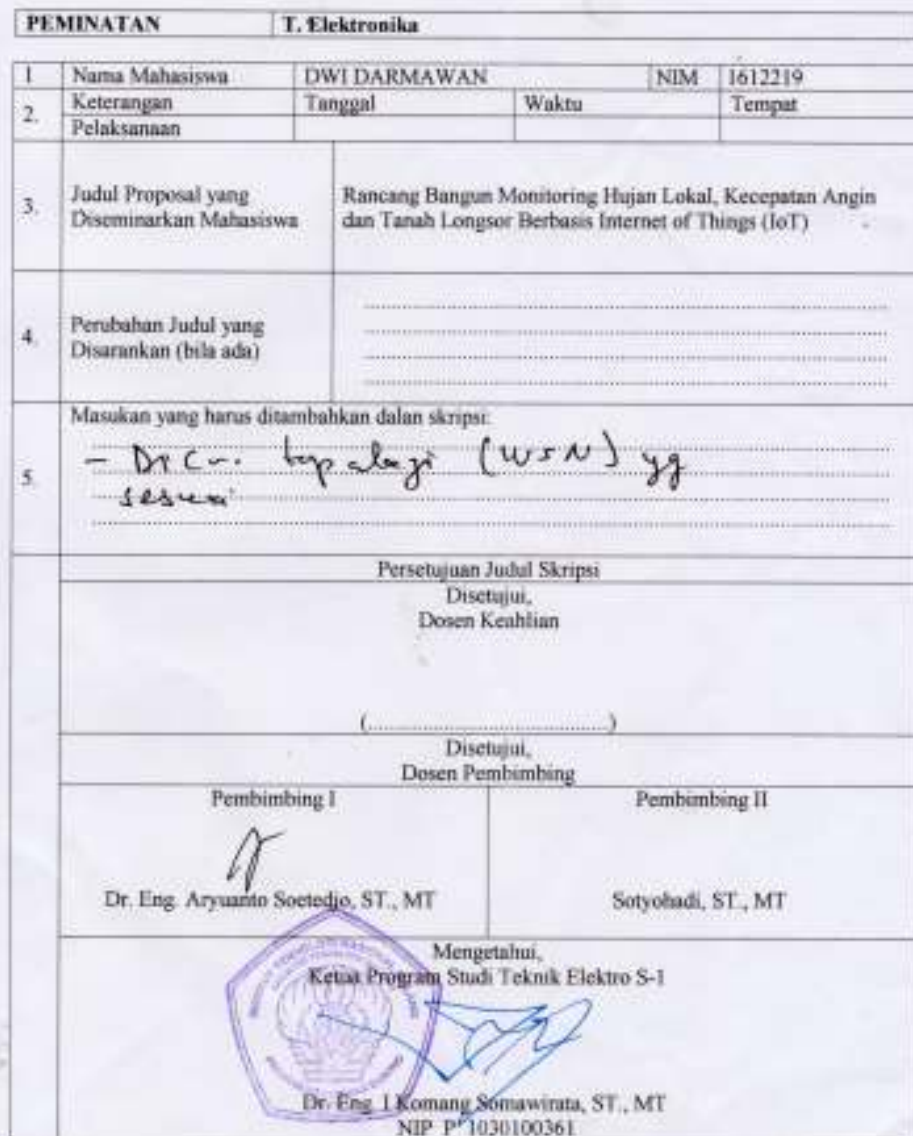 PEMINATAN T. Elektronika
1 Nama Mahasiswa DWI DARMAWAN NIM 1612219
2. Keterangan Tanggal Waktu Tempat
Pelaksanaan
3. Judul Proposal yang Rancang Bangun Monitoring Hujan Lokal, Kecepatan Angin
Diseminarkan Mahasiswa dan Tanah Longsor Berbasis Internet of Things (IoT)
4. Perubahan Judul yang
Disarankan (bila ada)
Masukan yang harus ditambahkan dalan skripsi:
- topologi (WSN) yg
5. sesuai
Persetujuan Judul Skripsi
Disetujui,
Dosen Keahlian
(........................................)
Disetujui,
Dosen Pembimbing
Pembimbing I Pembimbing II
Dr. Eng. Aryuanto Soetedjo, ST., MT Sotyohadi, ST., MT
Mengetahui,
Ketua Program Studi Teknik Elektro S-1
Dr. Eng. I Komang Somawirata, ST., MT
NIP P 1030100361